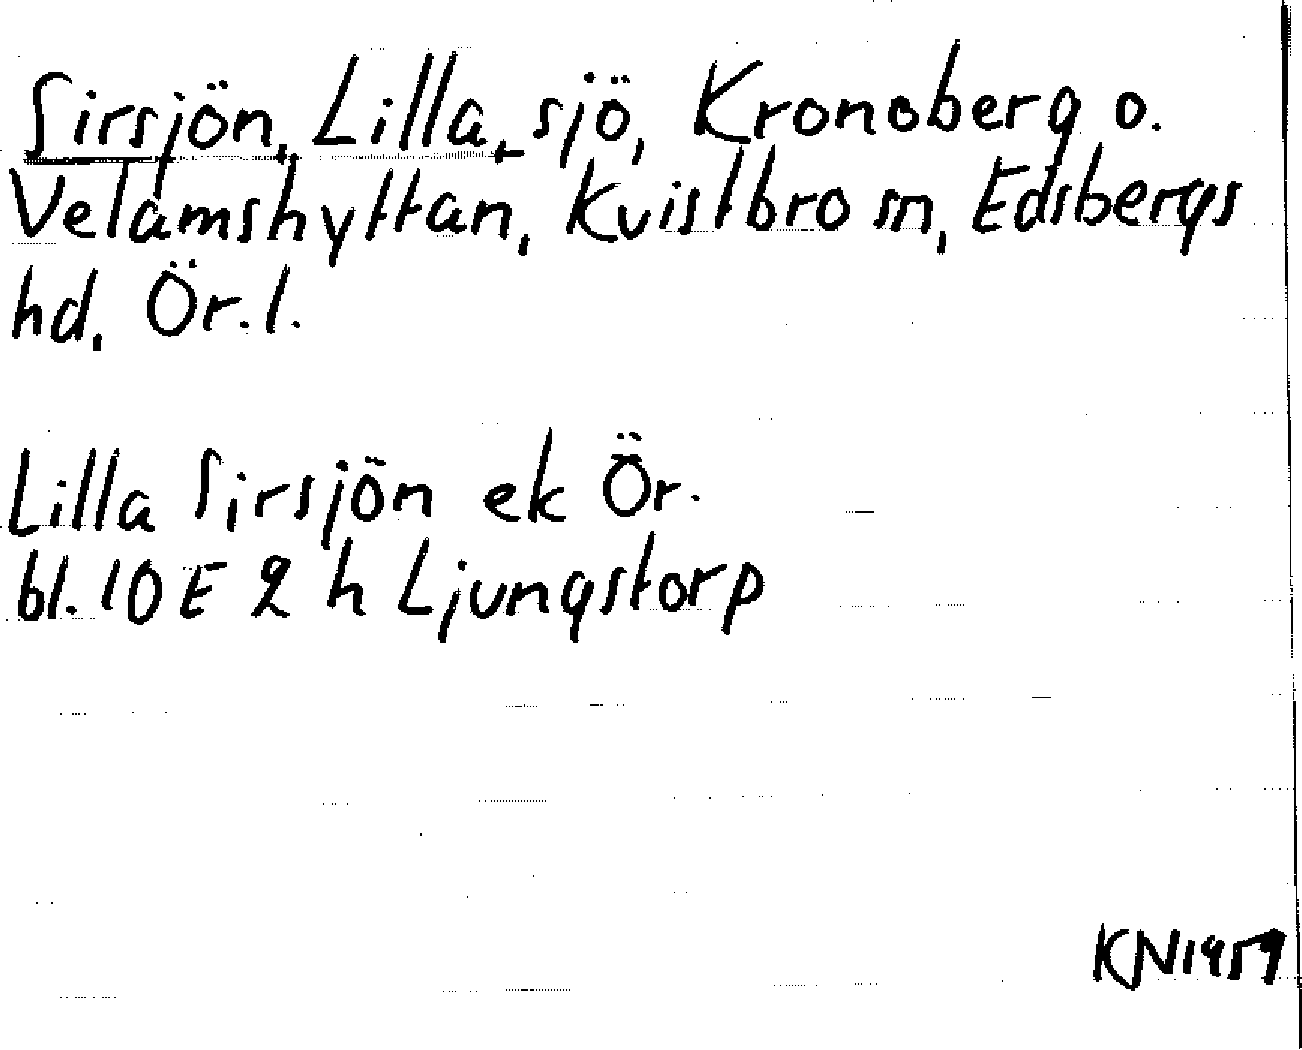 Sirsjön, Lilla, sjö, Kronoberg o.
Velamshyttan, Kvistbro sn, Edsbergs
hd, Ör.l.
Lilla Sirsjön ek Ör.
bl. 10 E 2 h Ljungstorp
KN1959